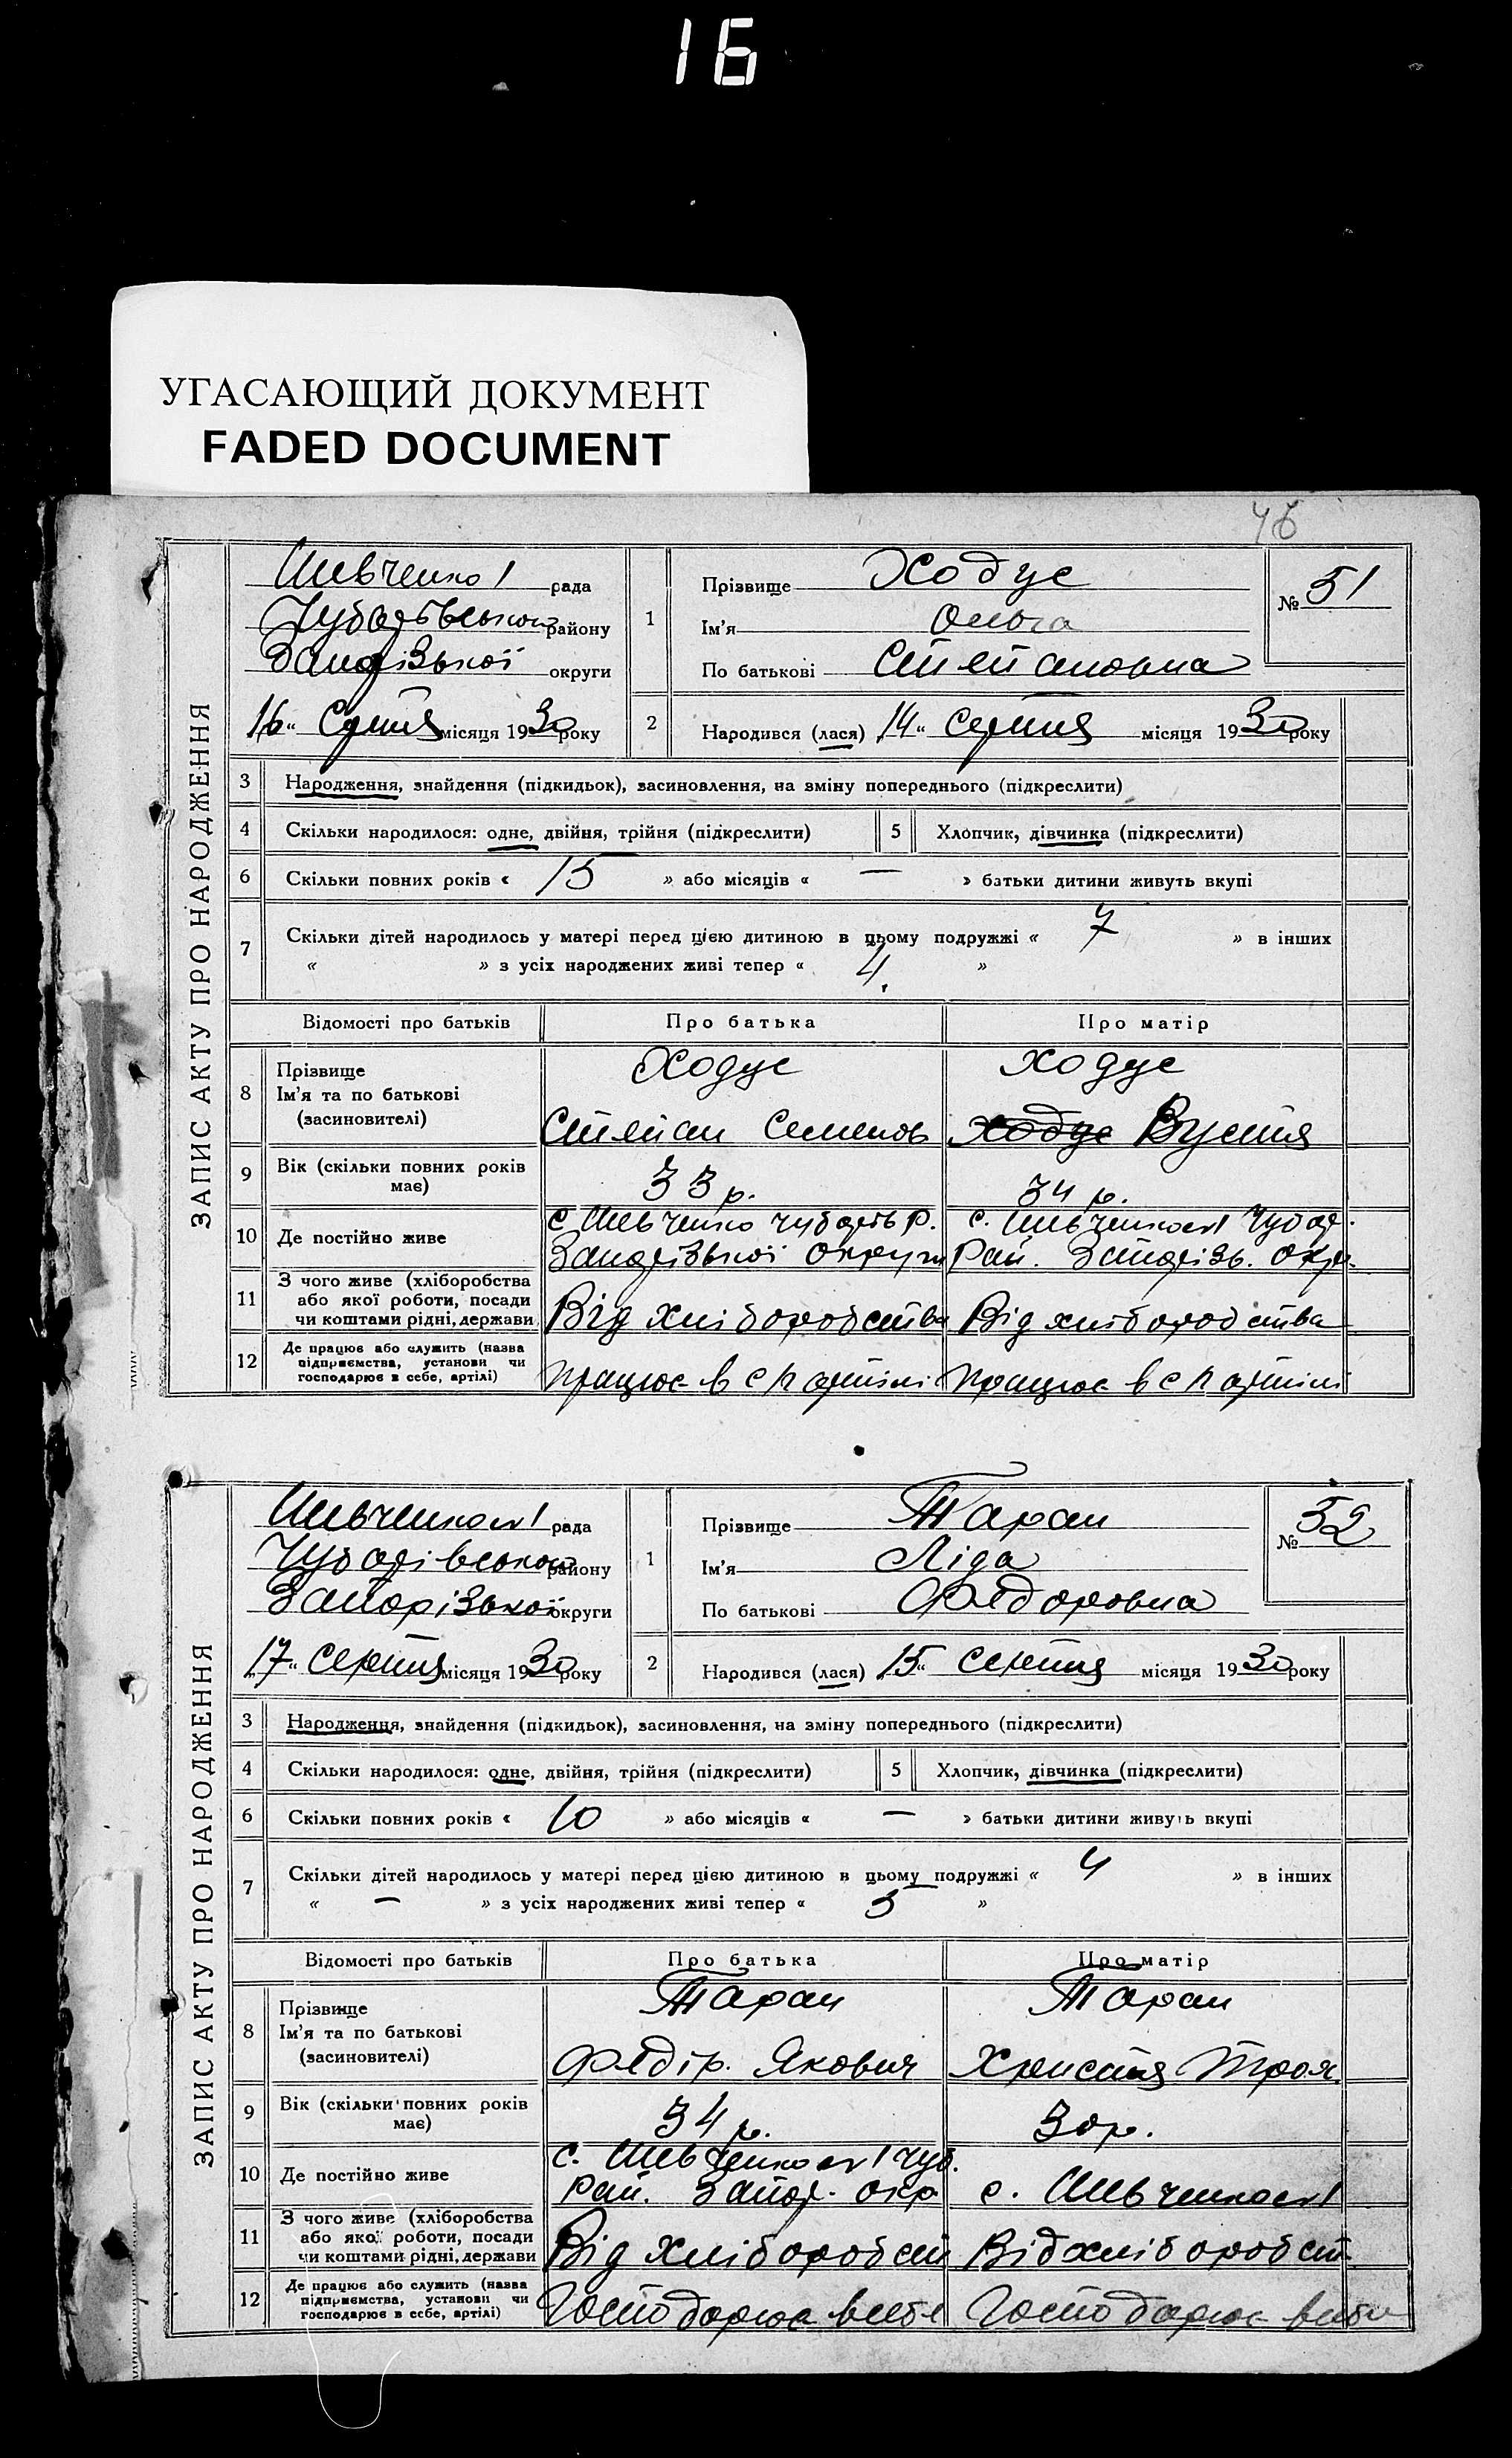 16
УГАСАЮЩИЙ ДОКУМЕНТ
FADED DOCUMENT
46
ЗАПИС АКТУ ПРО НАРОДЖЕННЯ
Шевченко 1 рада
Чубарівського району
Запорізької округи
„16“ Серпня місяця 1930 року
1
Прізвище Ходус
Ім'я Ольга
По батькові Степановна
№ 51
2 Народився (лася) „14“ Серпня місяця 1930 року
3 Народження, знайдення (підкидьок), засиновлення, на зміну попереднього (підкреслити)
4 Скільки народилося: одне, двійня, трійня (підкреслити) 5 Хлопчик, дівчинка (підкреслити)
6 Скільки повних років « 15 » або місяців « — » батьки дитини живуть вкупі
7 Скільки дітей народилось у матері перед цією дитиною в цьому подружжі « 7 » в інших
« » з усіх народжених живі тепер « 4. »
Відомості про батьків Про батька Про матір
8 Прізвище
Ім'я та по батькові
(засиновителі)
Ходус
Степан Семенов
Ходус
Ходус Вустя
9 Вік (скільки повних років має) 33 р. 34 р.
10 Де постійно живе
с. Шевченко Чубарів р.
Запорізької округи
с. Шевченково 1 Чубар.
Рай. Запорізь. окр.
11 З чого живе (хліборобства
або якої роботи, посади
чи коштами рідні, держави
Від хліборобства Від хліборобства
12 Де працює або служить (назва
підприємства, установи чи
господарює в себе, артілі)
працює в с г артілі працює в с г артілі
ЗАПИС АКТУ ПРО НАРОДЖЕННЯ
Шевченков 1 рада
Чубарівського району
Запорізької округи
„17“ Серпня місяця 1930 року
1
Прізвище Таран
Ім'я Ліда
По батькові Федоровна
№ 52
2 Народився (лася) „15“ Серпня місяця 1930 року
3 Народження, знайдення (підкидьок), засиновлення, на зміну попереднього (підкреслити)
4 Скільки народилося: одне, двійня, трійня (підкреслити) 5 Хлопчик, дівчинка (підкреслити)
6 Скільки повних років « 10 » або місяців « — » батьки дитини живуть вкупі
7 Скільки дітей народилось у матері перед цією дитиною в цьому подружжі « 4 » в інших
« — » з усіх народжених живі тепер « 3 »
Відомості про батьків Про батька Про матір
8 Прізвище
Ім'я та по батькові
(засиновителі)
Таран
Федір. Якович
Таран
Христя Троя.
9 Вік (скільки повних років має) 34 р. 30 р.
10 Де постійно живе
с. Шевченков 1 Чуб.
Рай. Запор. окр
с. Шевченков 1
11 З чого живе (хліборобства
або якої роботи, посади
чи коштами рідні, держави
Від хліборобст Від хліборобст.
12 Де працює або служить (назва
підприємства, установи чи
господарює в себе, артілі)
Господарює в себе Господарює в себе